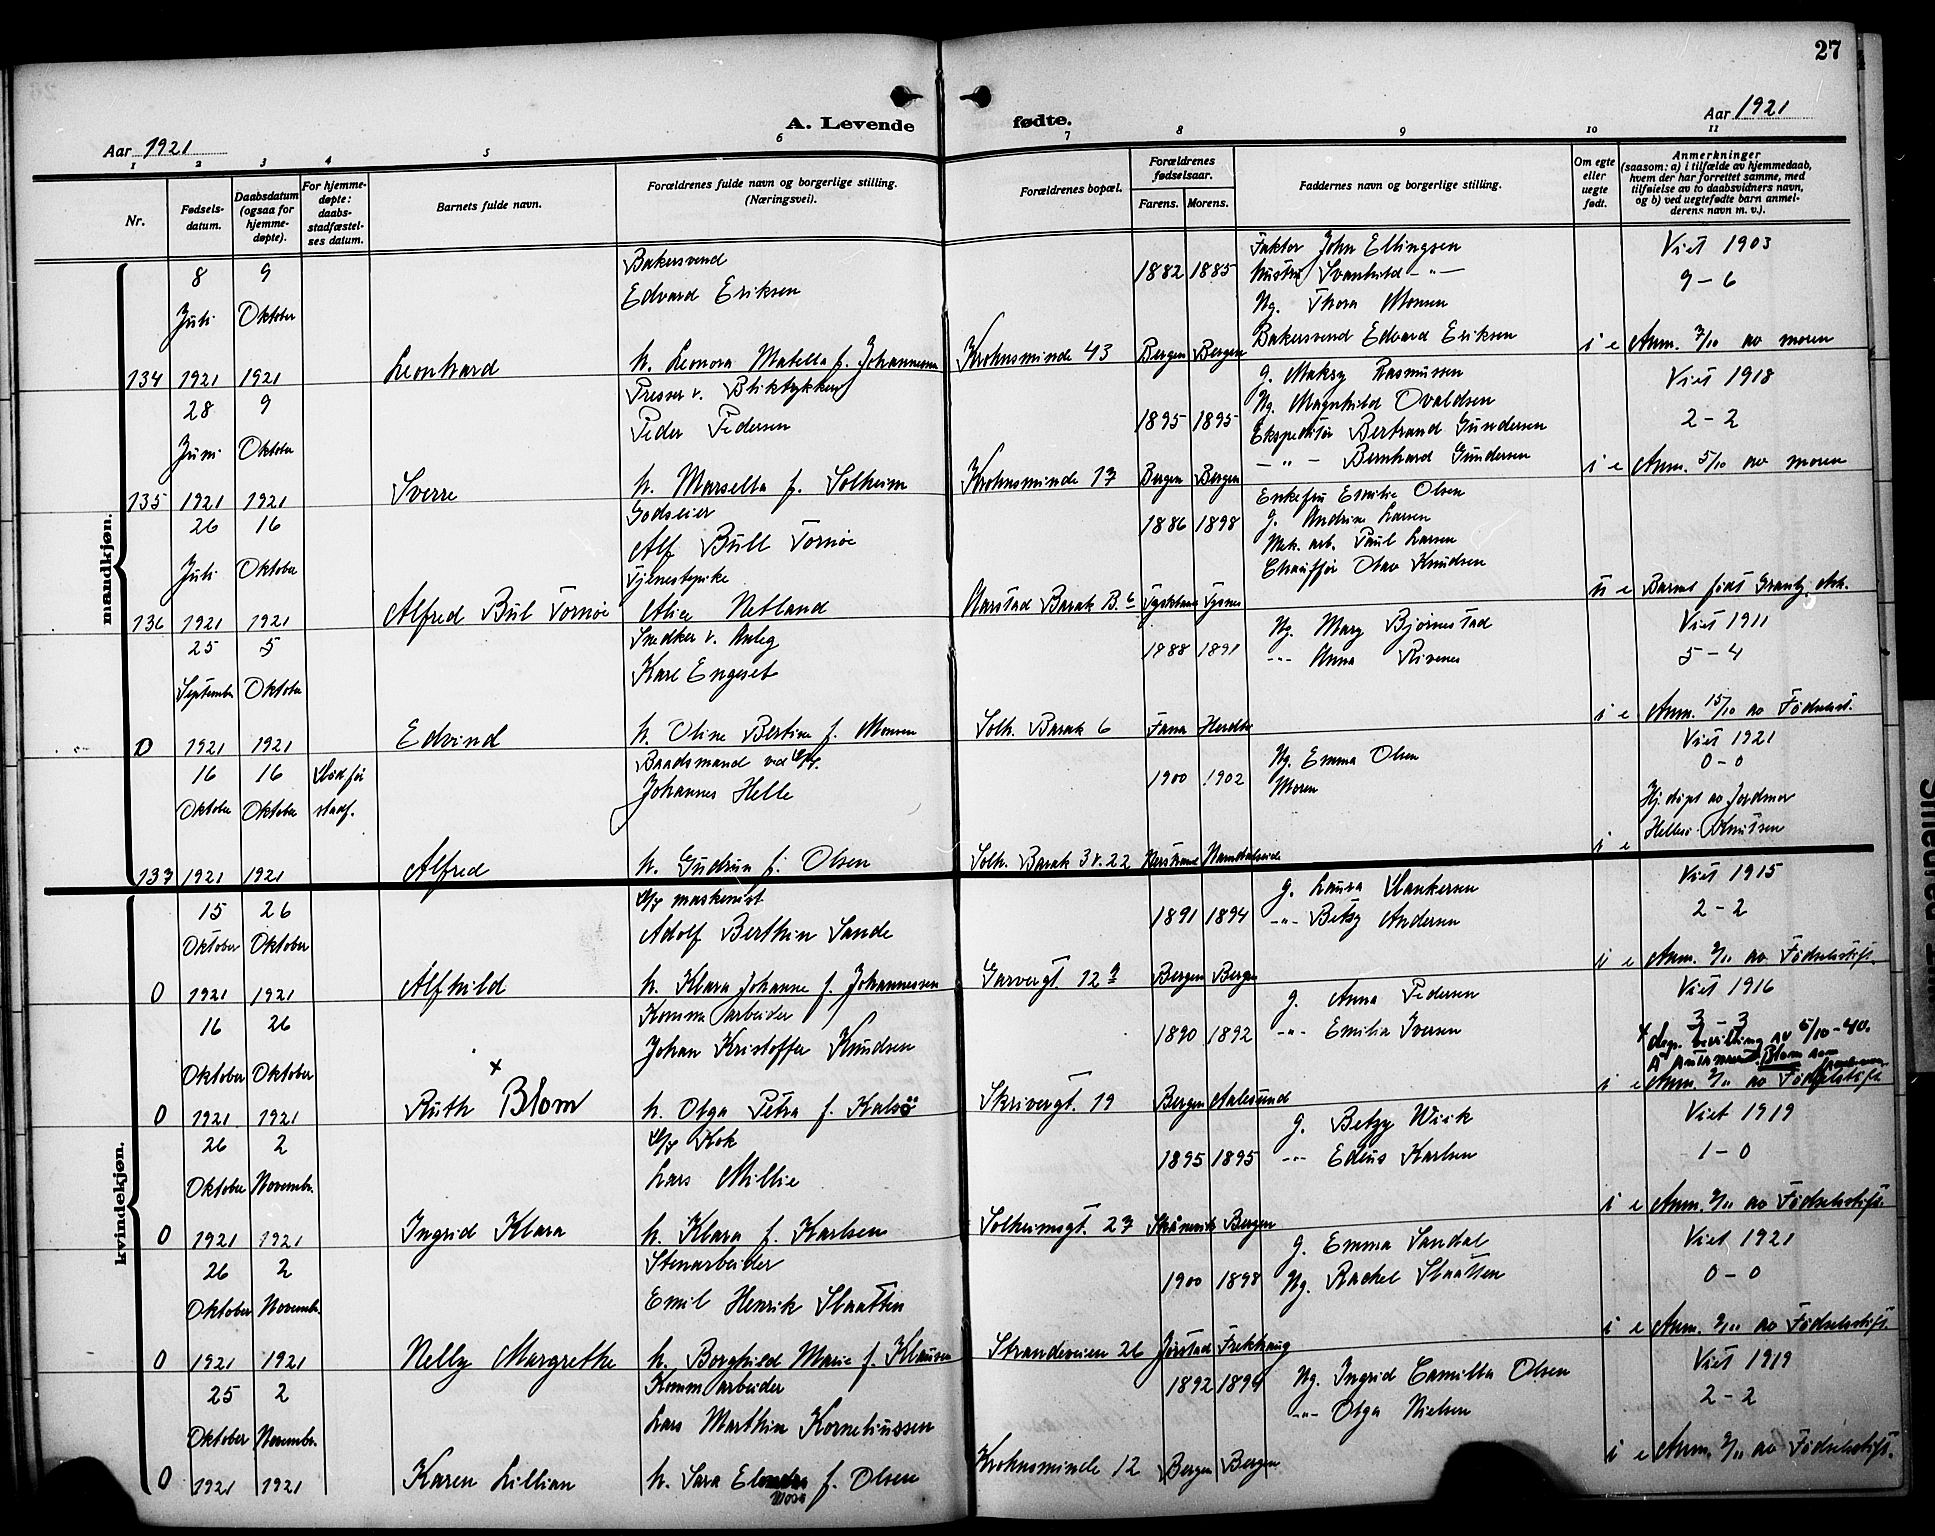 27
A. Levende fødte.
Aar 1921
Aar 1921
1 2 3 4 5 6 7 8 9 10 11
Nr.
Fødsels-
datum.
Daabsdatum
(ogsaa for
hjemme-
døpte).
For hjemme-
døpte:
daabs-
stadfæstel-
ses datum.
Barnets fulde navn.
Forældrenes fulde navn og borgerlige stilling.
(Næringsvei).
Forældrenes bopæl.
Forældrenes
fødselsaar.
Farens. Morens.
Faddernes navn og borgerlige stilling.
Om egte
eller
uegte
født.
Anmerkninger
(saasom: a) i tilfælde av hjemmedaab,
hvem der har forrettet samme, med
tilføielse av to daabsvidners navn,
og b) ved uegtefødte barn anmel-
derens navn m. v.).
mandkjøn.
8 9 Bakersvend 1882 1885 Faktor John Ellingsen Viet 1903
Edvard Eriksen Hustru Svanhild -"- 9-6
Juli Oktober Ug. Thora Monsen
134 1921 1921 Leonhard h. Leonora Matella f. Johannessen Krohnsminde 43 Bergen Bergen Bakersvend Edvard Eriksen i e Anm. 7/10 av moren
28 9 Presser v. Bliktrykkeri 1895 1895 g. Maksy Rasmussen Viet 1918
Peder Pedersen Ug. Magnhild Ovaldsen 2-2
Juni Oktober Ekspeditør Bertrand Gundersen
135 1921 1921 Sverre h. Marsella f. Solheim Krohnsminde 17 Bergen Bergen -"- Bernhard Gundersen i e Anm. 5/10 av moren
26 16 Godseier 1886 1898 Enkefru Emilie Olsen
Alf Bull Tornøe g. Andrine Larsen
Juli Oktober Tjenestepike Mek. arb. Paul Larsen
136 1921 1921 Alfred Bul Tornøe Alice Netland Aarstad Barak B. 6 Tysnes Chauffør Olav Knudsen u e Barnet født
25 5 Snedker v. Anleg 1888 1891 Ug. Mary Bjørnestad Viet 1911
September Oktober Karl Engeset -"- Anna Rivenes 5-4
0 1921 1921 Edvind h. Oline Bertine f. Monsen Solh. Barak 6 Fana Herdla i e Anm. 15/10 av Fødselsst.
16 16 Baadsmand ved D/S. 1900 1902 Ug. Emma Olsen Viet 1921
Oktober Oktober stadf. Johannes Helle Moren 0-0
Hj. døpt av Jordmor
137 1921 1921 Alfred h. Gudrun f. Olsen Solh. Barak 3 v. 22 i e Knutsen
kvindekjøn.
15 26 D/S maskinist 1891 1894 g. Laura Hankersen Viet 1915
Oktober Oktober Adolf Berthin Sande -"- Betsy Andersen 2-2
0 1921 1921 Alfhild h. Klara Johanne f. Johannessen Garvergt. 12 a Bergen Bergen i e Anm. 2/11 av Fødselsstift.
16 26 Komm arbeider 1890 1892 g. Anna Pedersen Viet 1916
Johan Kristoffer Knudsen -"- Emilia Iversen 3-3
Oktober Oktober x dep. bevilling av 5/10-40.
0 1921 1921 Ruth x Blom h. Olga Petra f. Kalsø Skrivergt. 19 Bergen Aalesund i e Anm. 2/11 av Fødselsstift
26 2 D/S Kok 1895 1895 g. Betzy Wiik Viet 1919
Oktober November Lars Millie -"- Edius Karlsen 1-0
0 1921 1921 Ingrid Klara h. Klara f. Karlsen Solheimsgt. 23 Skånevik Bergen i e Anm. 2/11 av Fødselsstift.
26 2 Stenarbeider 1900 1898 g. Emma Sandal Viet 1921
Oktober November Emil Henrik Slaatten Ug. Rachel Slaatten 0-0
0 1921 1921 Nelly Margrethe h. Borghild Marie f. Klausen Strandeveien 26 Jørstad Frekhaug i e Anm. 2/11 av Fødselsstift.
25 2 Komm arbeider 1892 1894 Ug. Ingrid Camilla Olsen Viet 1919
Oktober November Lars Marthin Korneliussen -"- Olga Nielsen 2-2
0 1921 1921 Karen Lillian h. Sara f. Olsen Krohnsminde 12 Bergen Bergen i e Anm. 2/11 av Fødselsstift.